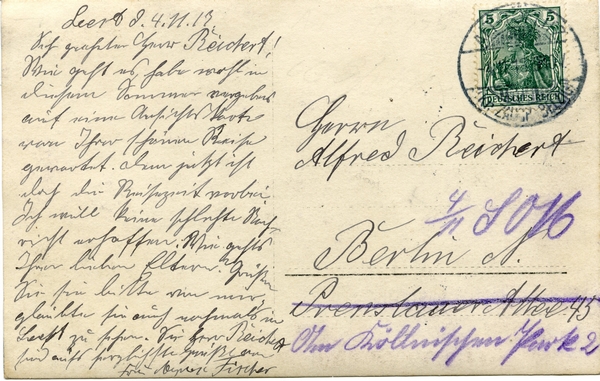 Leest d. 4.11.13
Sehr geehrter Herr Reichert!
Wie geht es, habe wohl in
diesem Sommer vergebens
auf eine Ansichtskarte
von Ihrer schönen Reise
gewartet. denn jetzt ist
doch die Reisezeit vorbei
Ich will keine schlechte Nach
richt erhoffen. Wie gehts
Ihrer lieben Eltern. Grüßen
Sie sie bitte von mir,
glaubte sie auch nochmals in
zu sehen. Sie Herr Reichert
sind aufs herzlichste gegrüßt von
Frau Fischer
5 5
DEUTSCHES REICH
Herrn
Alfred Reichert
4/11 SO16
Berlin N.
Prenslauer Allee 45
Am Köllnischen Park 2